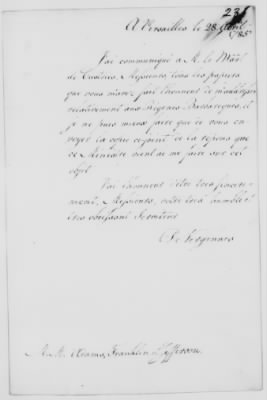 231
A Versailles le 28 Avril
1785
J'ai communiqué à M. le Mâal
de Castries, Messieurs, tous les papiers
que vous m'avez fait l'honneur de m'addresser
relativement aux Régences Barbaresques, et
je ne puis mieux faire que de vous en
voyer la copie cy jointe de la reponse que
ce Ministre vient de me faire sur cet
objet.
J'ai l'honneur d'être tres sincere-
ment, Messieurs, votre très humble et
très obéissant Serviteur
De Vergennes
M. M. Adams, Franklin et Jefferson.